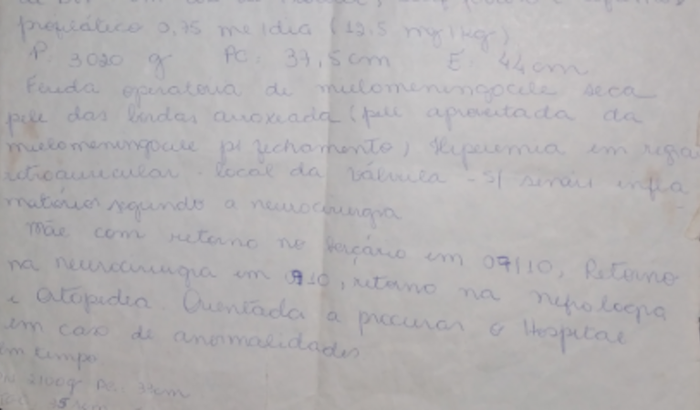 profilático 0,75 ml/dia (12,5 mg/kg)
P. 3020 g PC: 37,5cm E 44cm
Ferida operatoria de mielomeningocele seca
pele das bordas arroxeada (pele aproveitada da
mielomeningocele p/ fechamento) Hiperemia em regiã
retroauricular - local da válvula - s/ sinais infla
matórios segundo a neurocirurgia
Mãe com retorno no berçário em 07/10, Retorno
na neurocirurgia em 9/10, retorno na nefrologia
e Ortopedia. Orientada a procurar o Hospital
em caso de anormalidades
em tempo
2100g PC: 33cm